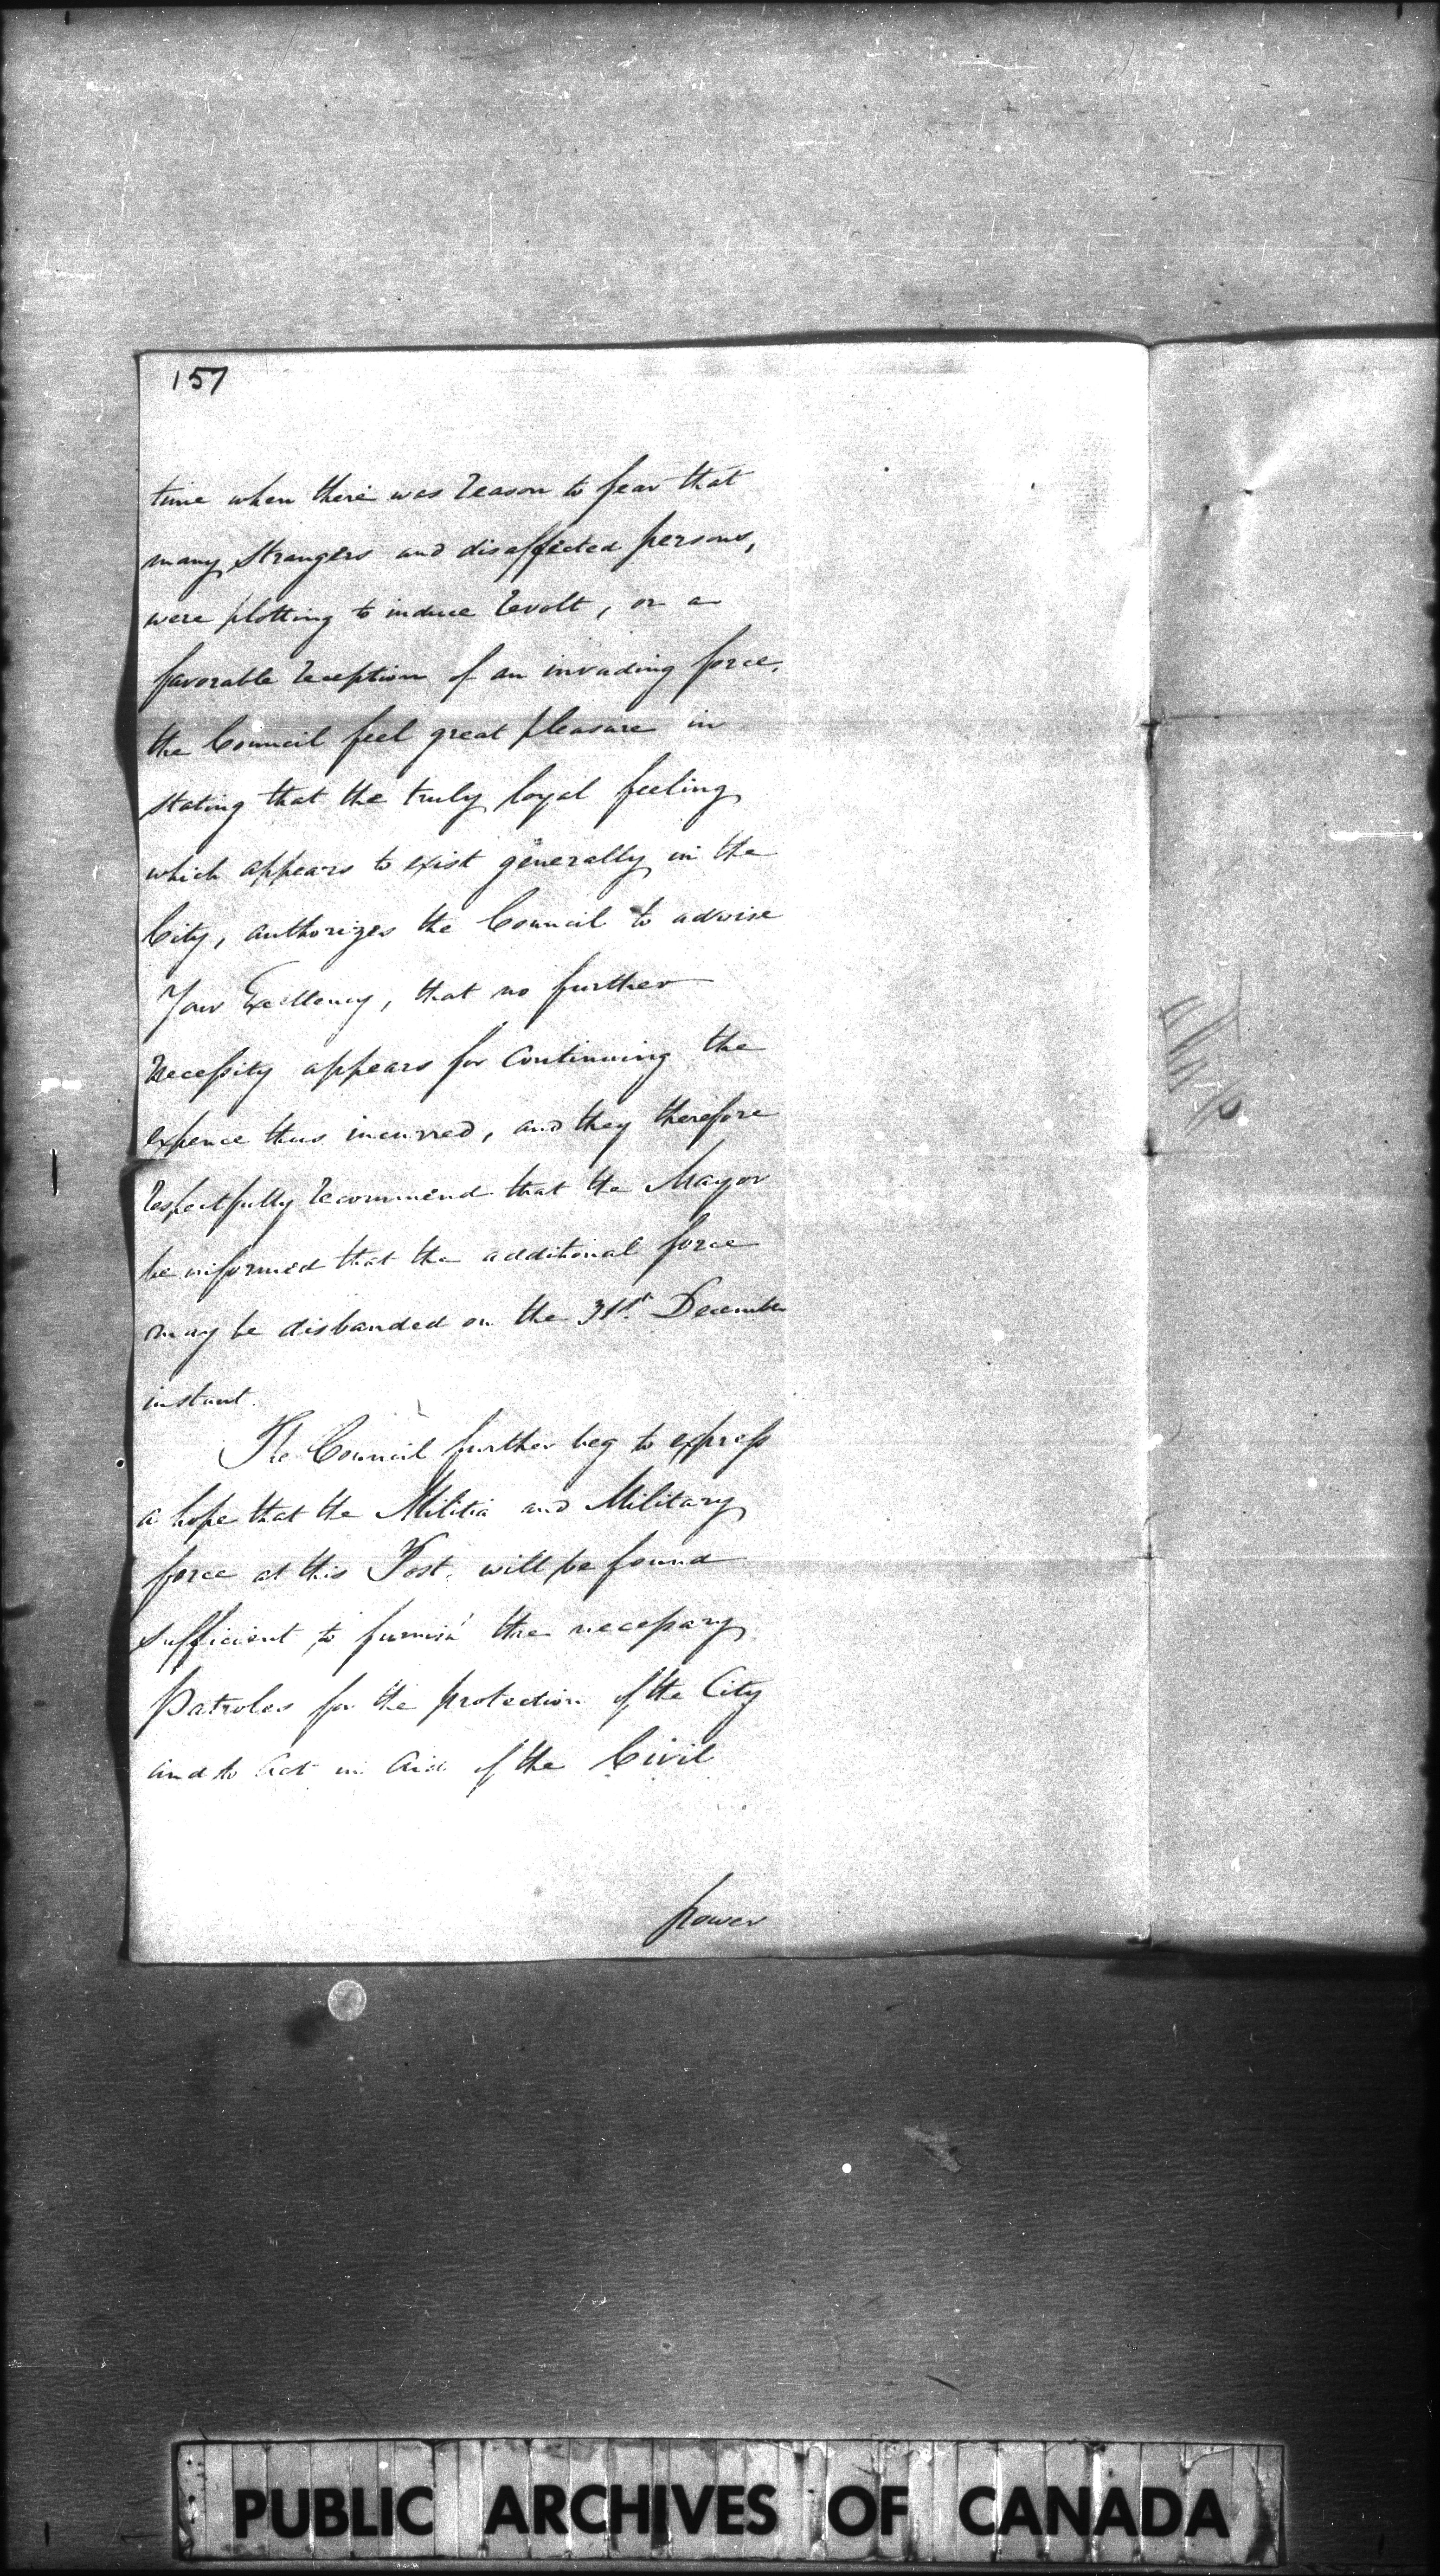 157
time when there was reason to fear that
many Strangers and disaffected persons,
were plotting to induce revolt, or a
favorable reception of an invading force,
the Council feel great pleasure in
stating that the truly loyal feeling
which appears to exist generally in the
City, authorizes the Council to advise
Your Excellency, that no further
necessity appears for continuing the
expence thus incurred, and they therefore
respectfully recommend that the Mayor
be informed that the additional force
may be disbanded on the 31st December
instant.
The Council further beg to express
a hope that the Militia and Military
force at this Post, will be found
sufficient to furnish the necessary
Patroles for the protection of the City
and to act in aid of the Civil
power
PUBLIC ARCHIVES OF CANADA